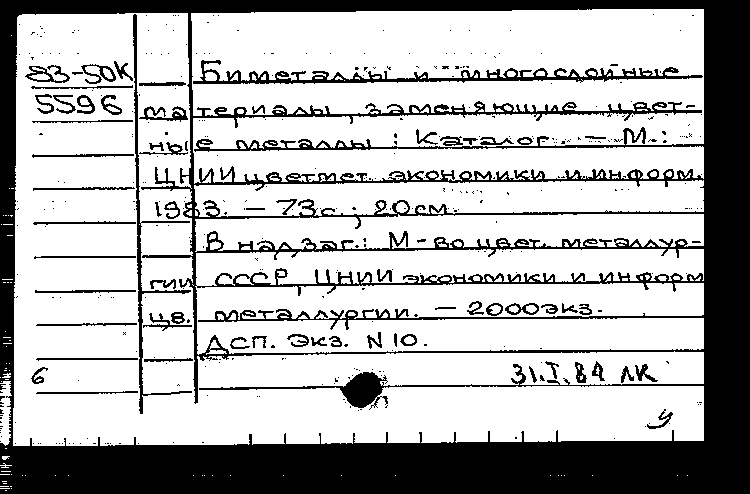 83-50К Биметаллы и многослойные
5596 материалы, заменяющие цвет-
ные металлы : Каталог. – М.:
ЦНИИцветмет экономики и информ.
1983. – 73с.; 20см.
В надзаг.: М-во цвет. металлур-
гии СССР, ЦНИИ экономики и информ
цв. металлургии. – 2000экз.
ДСП. Экз. N 10.
6 31.I.84 ЛК
у